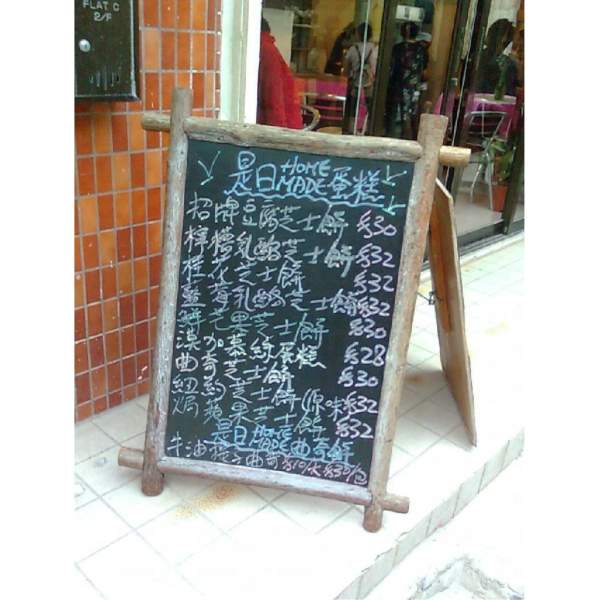 FLAT C
2/F
是日HOME MADE蛋糕
招牌豆腐芝士餅 $30
檸檬乳酪芝士餅 $32
桂花芝士餅 $32
藍莓乳酪芝士餅 $32
鮮芒果芝士餅 $30
漠加慕絲蛋糕 $28
曲奇芝士餅 $30
紐約芝士餅(原味) $32
焗蘋果芝士餅 $32
是日HOME MADE曲奇餅
牛油 曲奇 $10/ $30/包